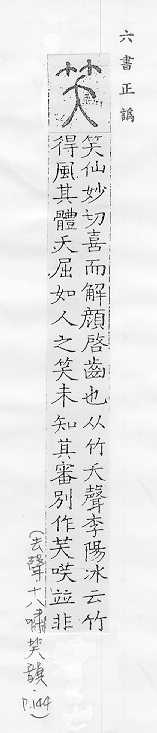 六書正譌
笑
笑仙妙切喜而解顔啓齒也从竹夭聲李陽冰云竹
得風其體夭屈如人之笑未知其審別作关咲竝非
(去聲十八嘯笑韻．P.144)